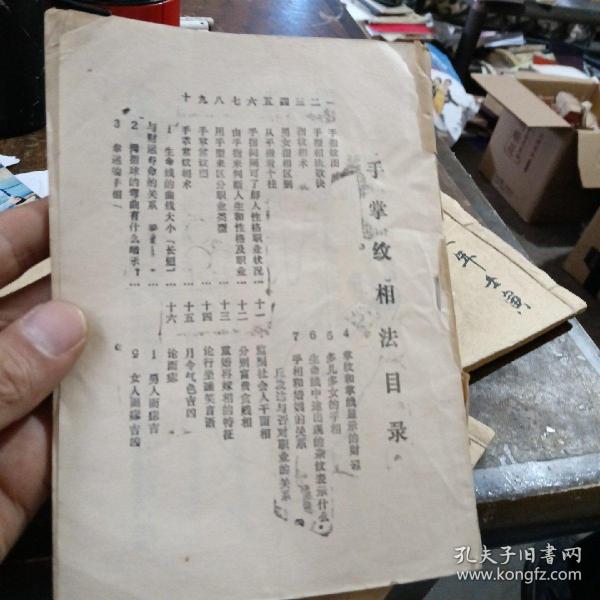 手掌纹相法目录
一 手指纹图
二 手指相法歌诀
三 指纹相术
四 男女指相区别
五 从手指看个性
六 手指纹间可了解人性格职业状况
七 由手指来判断人生和性格及职业
八 用手型来区分职业类型
九 手掌掌纹图
十 手掌掌纹相术
1 生命线的曲线大小「长短」
与财运寿命的关系
2 拇指球的弯曲有什么暗示？
3 幸运输手相
4 掌纹和掌线显示的财运
5 多儿多女的手相
6 生命线中途出现的杂纹表示什么
7 手相和婚姻的关系
发达与否对职业的关系
十一 监别社会人千面相
十二 分别富贵贫贱相
十三 重婚再嫁相的特征
十四 论行坐睡笑言语
十五 月令气色吉凶
十六 论面痣
1 男人面痣吉
2 女人面痣吉凶
年壬寅
孔夫子旧书网
www.kongfz.com